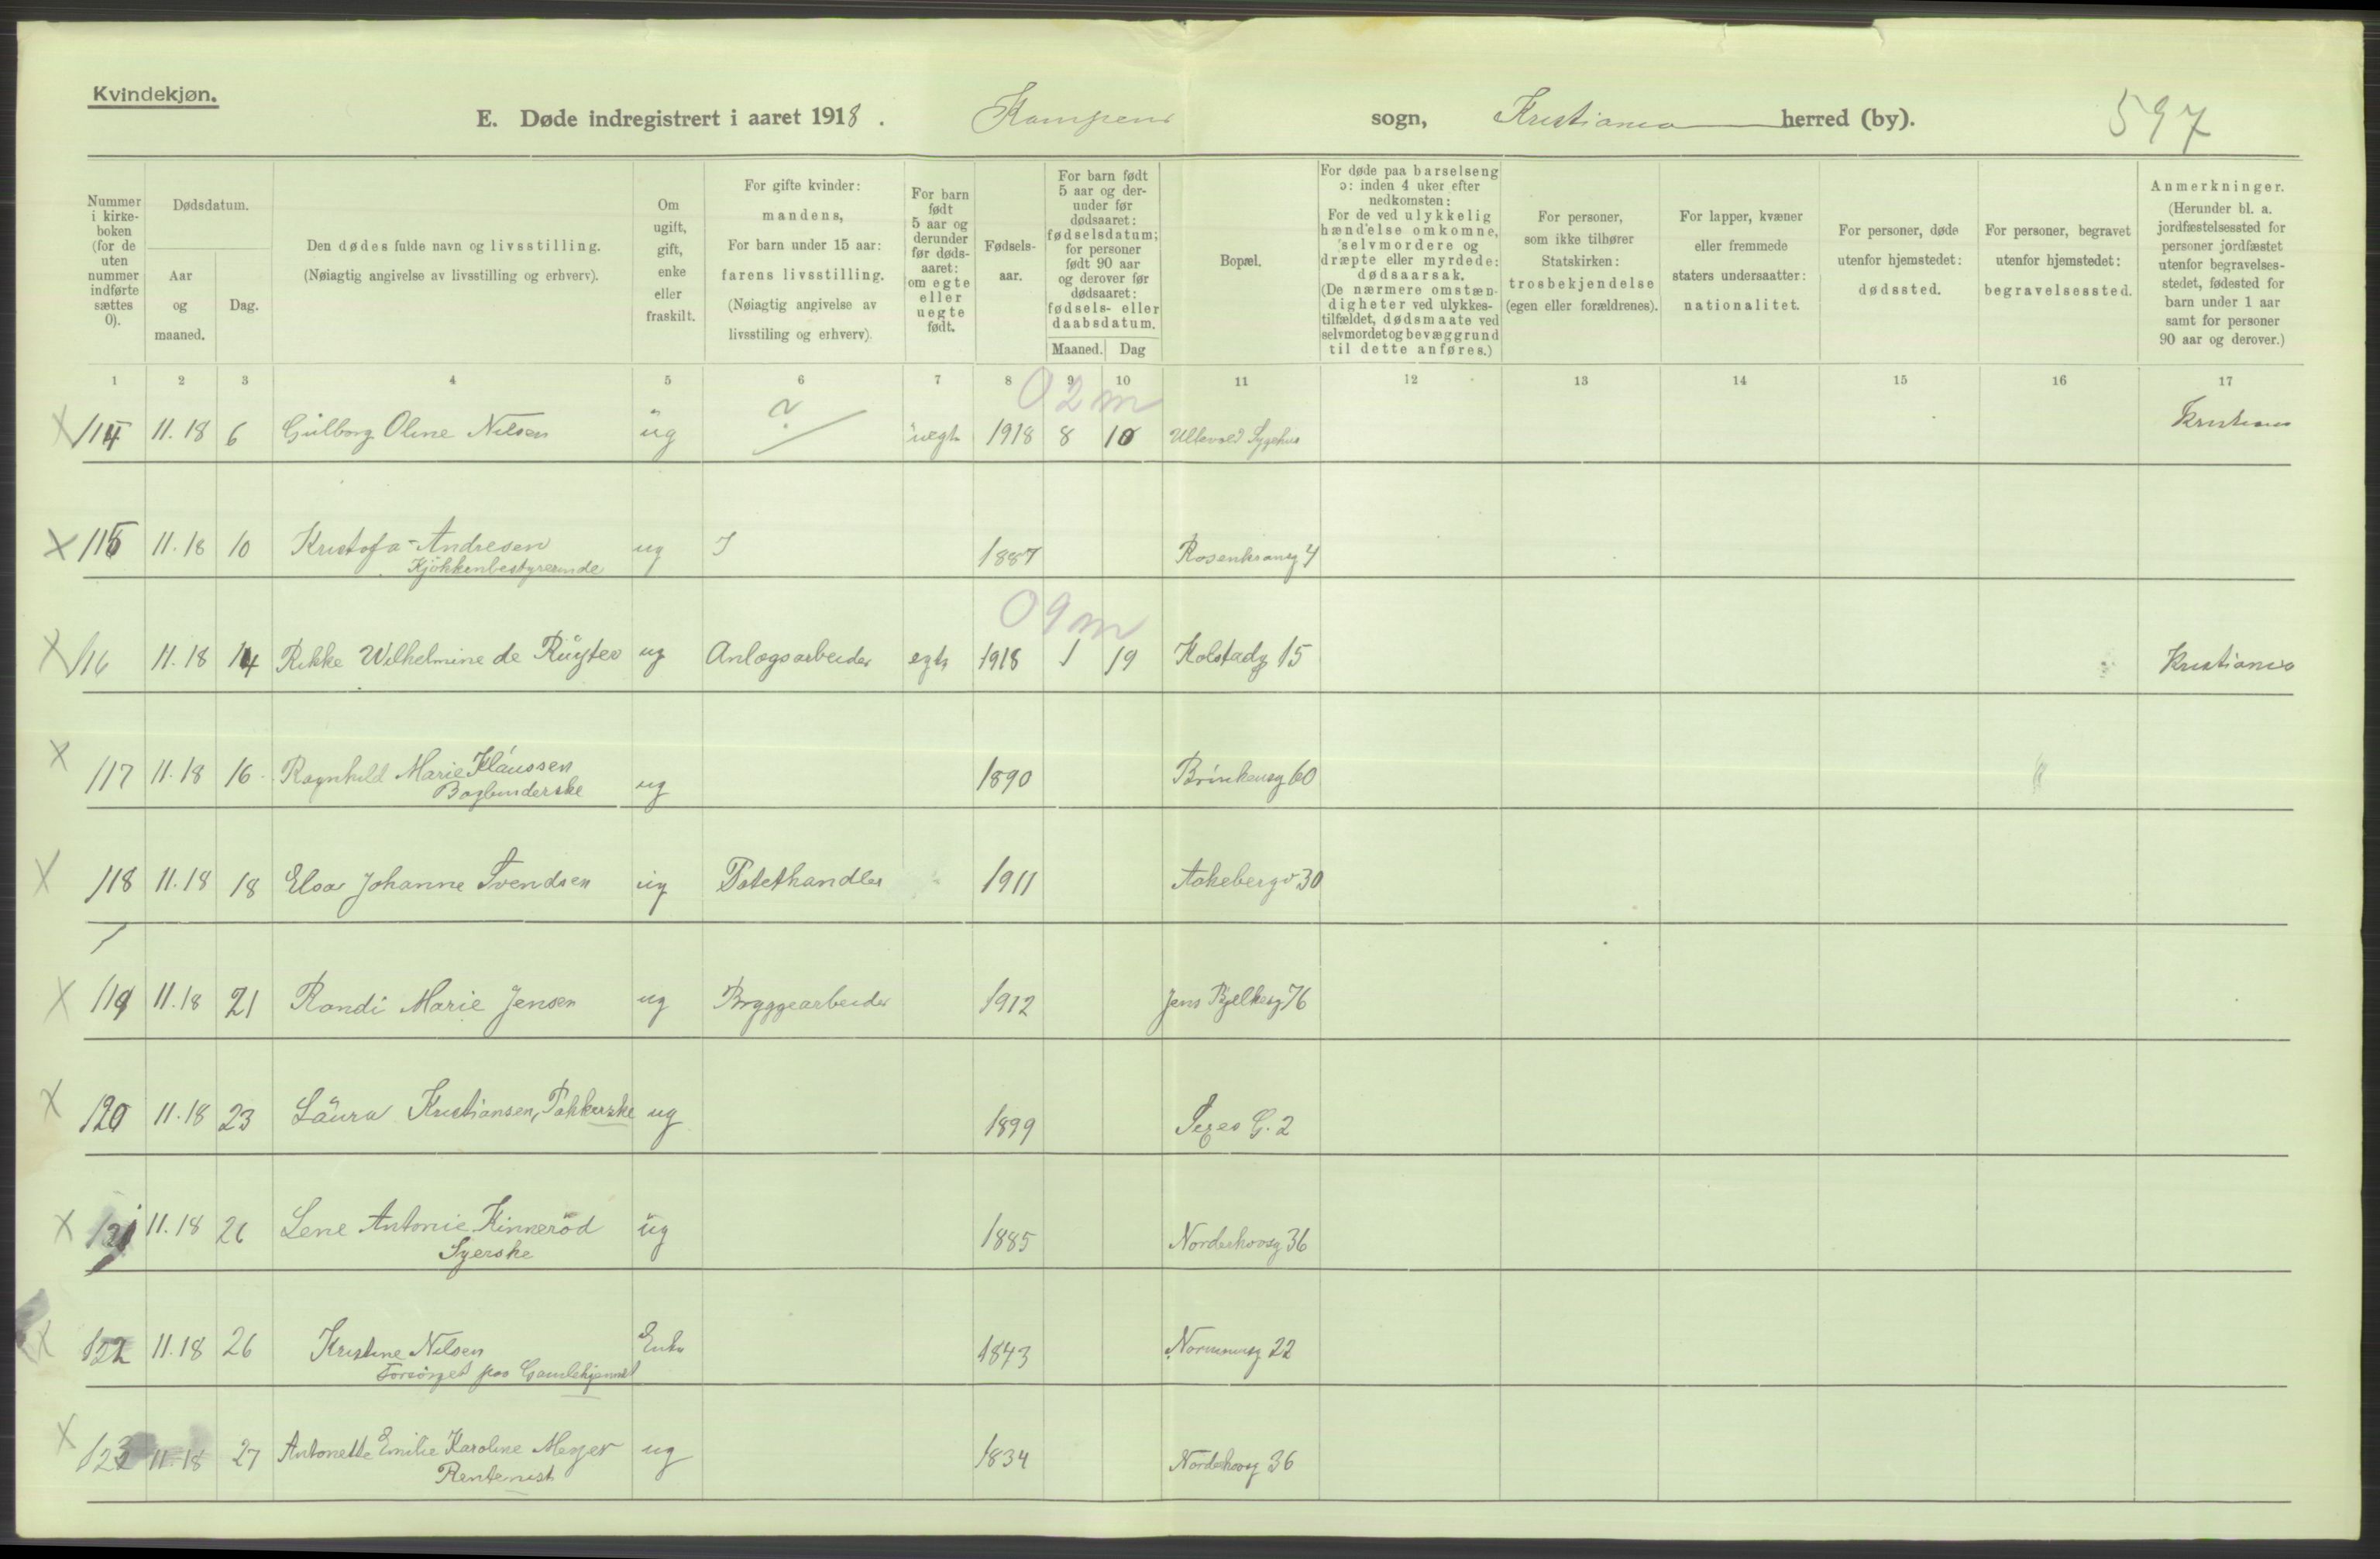 Kvindekjøn.
E. Døde indregistrert i aaret 1918. Kampens sogn, Kristiania herred (by). 597
Nummer i kirkeboken (for de uten nummer indførte sættes 0).
Dødsdatum.
Aar og maaned.
Dag.
Den dødes fulde navn og livsstilling.
(Nøiagtig angivelse av livsstilling og erhverv).
Om ugift, gift, enke eller fraskilt.
For gifte kvinder: mandens,
For barn under 15 aar: farens livsstilling.
(Nøiagtig angivelse av livsstiling og erhverv).
For barn født 5 aar og derunder før dødsaaret: om egte eller uegte født.
Fødselsaar.
For barn født 5 aar og derunder før dødsaaret: fødselsdatum; for personer født 90 aar og derover før dødsaaret: fødsels- eller daabsdatum.
Maaned. Dag
Bopæl.
For døde paa barselseng ɔ: inden 4 uker efter nedkomsten:
For de ved ulykkelig hændelse omkomne, selvmordere og dræpte eller myrdede: dødsaarsak.
(De nærmere omstændigheter ved ulykkestilfældet, dødsmaate ved selvmordet og bevæggrund til dette anføres.)
For personer, som ikke tilhører Statskirken: trosbekjendelse (egen eller forældrenes).
For lapper, kvæner eller fremmede staters undersaatter: nationalitet.
For personer, døde utenfor hjemstedet: dødssted.
For personer, begravet utenfor hjemstedet: begravelsessted.
Anmerkninger.
(Herunder bl. a. jordfæstelsessted for personer jordfæstet utenfor begravelsesstedet, fødested for barn under 1 aar samt for personer 90 aar og derover.)
1 2 3 4 5 6 7 8 9 10 11 12 13 14 15 16 17
0 2 m
X 114 11.18 6 Gulborg Oline Nilsen ug ? uegte 1918 8 10 Ullevold Sygehus Kristiania
X 115 11.18 10 Kristofa Andresen ug 1887 Rosenkransg 4
Kjøkkenbestyrerinde
0 9 m
X 116 11.18 14 Rikke Wilhelmine de Ruyter ug Anlægsarbeider egte 1918 1 19 Kolstadg 15 Kristiania
X 117 11.18 16 Ragnhild Marie Klaussen ug 1890 Brinkensg 60
Bogbinderske
X 118 11.18 18 Elsa Johanne Svendsen ug Potethandler 1911 Aakebergv 30
X 119 11.18 21 Randi Marie Jensen ug Bryggearbeider 1912 Jens Bjelkesg 76
X 120 11.18 23 Laura Kristiansen, Pakkerske ug 1899 G. 2
X 121 11.18 26 Lene Antonie Kinnerød ug 1885 Norderhovsg 36
Syerske
X 122 11.18 26 Kristine Nilsen Enke 1843 Normannsg 22
Forsørget paa Gamlehjemmet
X 123 11.18 27 Antonette Emilie Karoline Meyer ug 1834 Norderhovsg 36
Rentenist